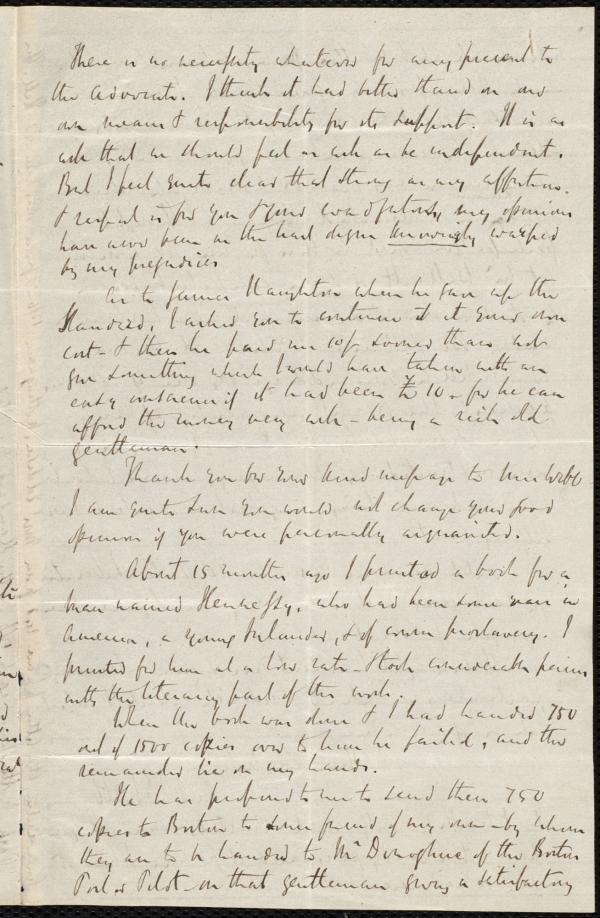 There is no necessity whatever for any present to
the Advocate. I think it had better stand on our
own means & responsibility for its support. It is as
well that we should feel as well as be independent.
But I feel quite clear that strong as my affection
& respect is for you & your coadjutors, my opinions
have never been in the least degree knowingly warped
by my prejudices
As to James Haughton when he gave up the
Standard, I asked you to continue it at your own
cost - & then he paid me 10/- sooner than not
give something which I would have taken with an
easy conscience if it had been £10 - for he can
afford the money very well - being a rich old
gentleman.
Thank you for your kind message to Mrs Webb
I am quite sure you would not change your good
opinion if you were personally acquainted.
About 15 months ago I printed a book for a
man named Hennessy, who had been some years in
America, a young Irelander, & of course proslavery. I
printed for him at a low rate - & took considerable pains
with the literary part of the work.
When the book was done & I had handed 750
out of 1500 copies over to him he failed, and the
remainder lie on my hands.
He has proposed to me to send these 750
copies to Boston to some friend of my own - by whom
they are to be handed to Mr Donoghue of the Boston
Post or Pilot - on that gentleman giving a satisfactory